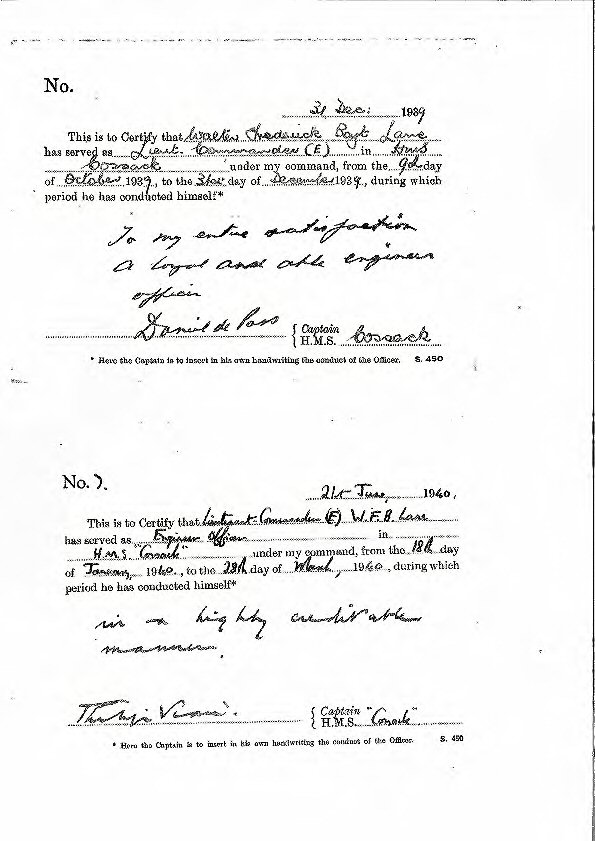 No.
31 Dec: 1939
This is to Certify that Walter Frederick Boyt Lane
has served as Lieut-Commander (E) in HMS
Cossack under my command, from the 9th day
of October 1939, to the 31st day of December 1939, during which
period he has conducted himself*
To my entire satisfaction
A loyal and able engineer
officer
Daniel de Pass { Captain
H.M.S. Cossack
* Here the Captain is to insert in his own handwriting the conduct of the Officer. S. 450
No. 7.
21st June, 1940.
This is to Certify that Lieutenant-Commander (E) W.F.B. Lane
has served as Engineer Officer in
H.M.S. "Cossack" under my command, from the 18th day
of January, 1940., to the 28th day of March, 1940., during which
period he has conducted himself*
in a highly creditable
manner.
Vian. { Captain
H.M.S. "Cossack"
* Here the Captain is to insert in his own handwriting the conduct of the Officer. S. 450